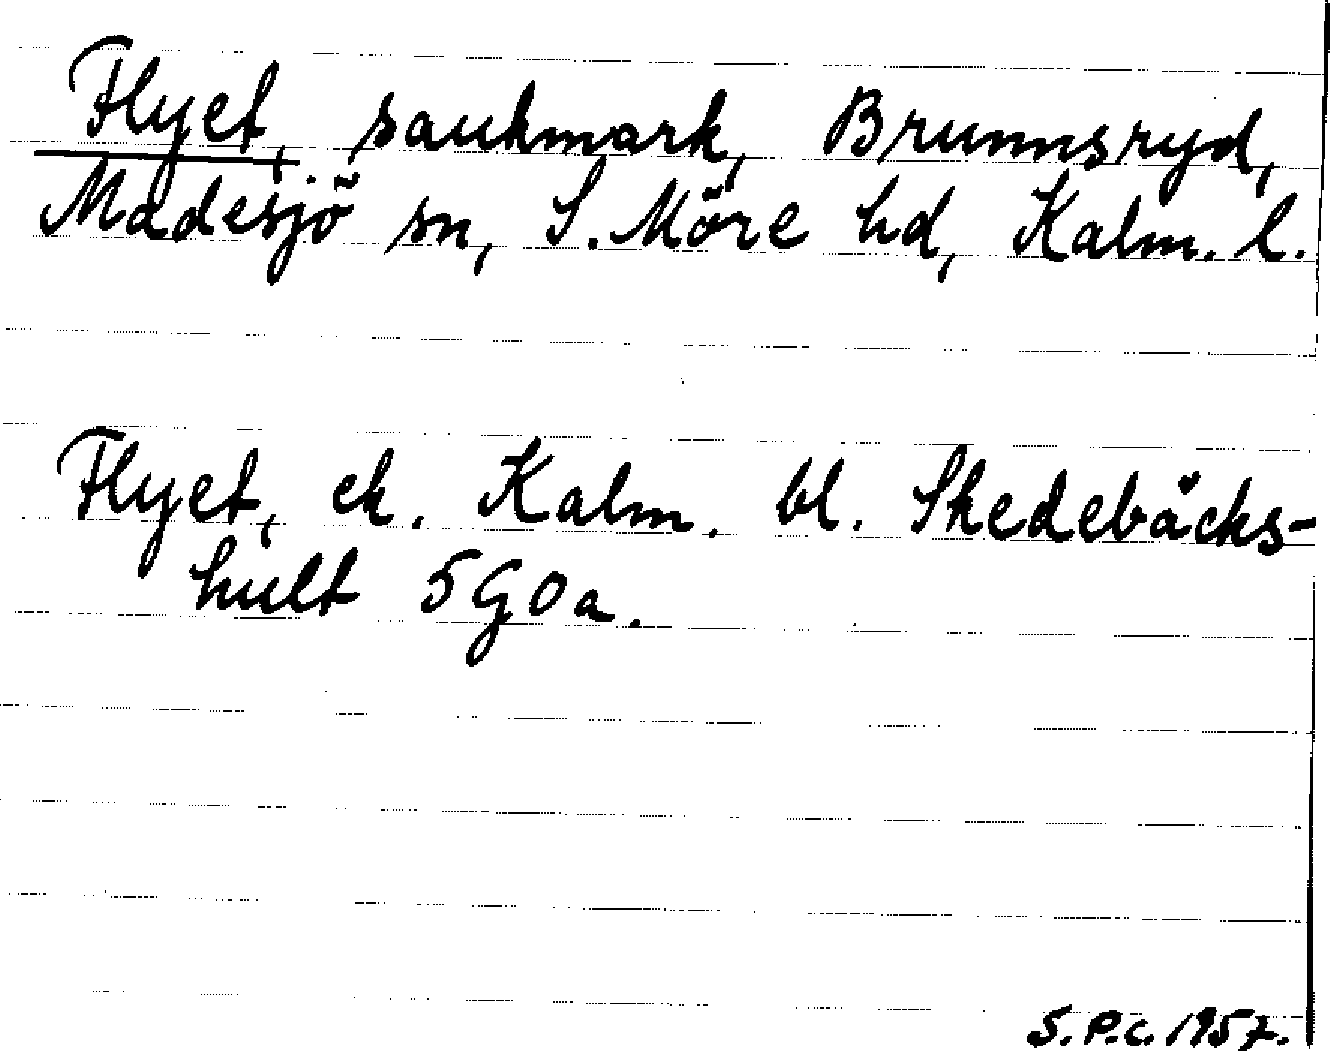 Flyet, sankmark, Brunnsryd,
Madesjö sn, S. Möre hd, Kalm. l.
Flyet, ek. Kalm. bl. Skedebäcks-
hult 5G0a.
S.P.C. 1957.